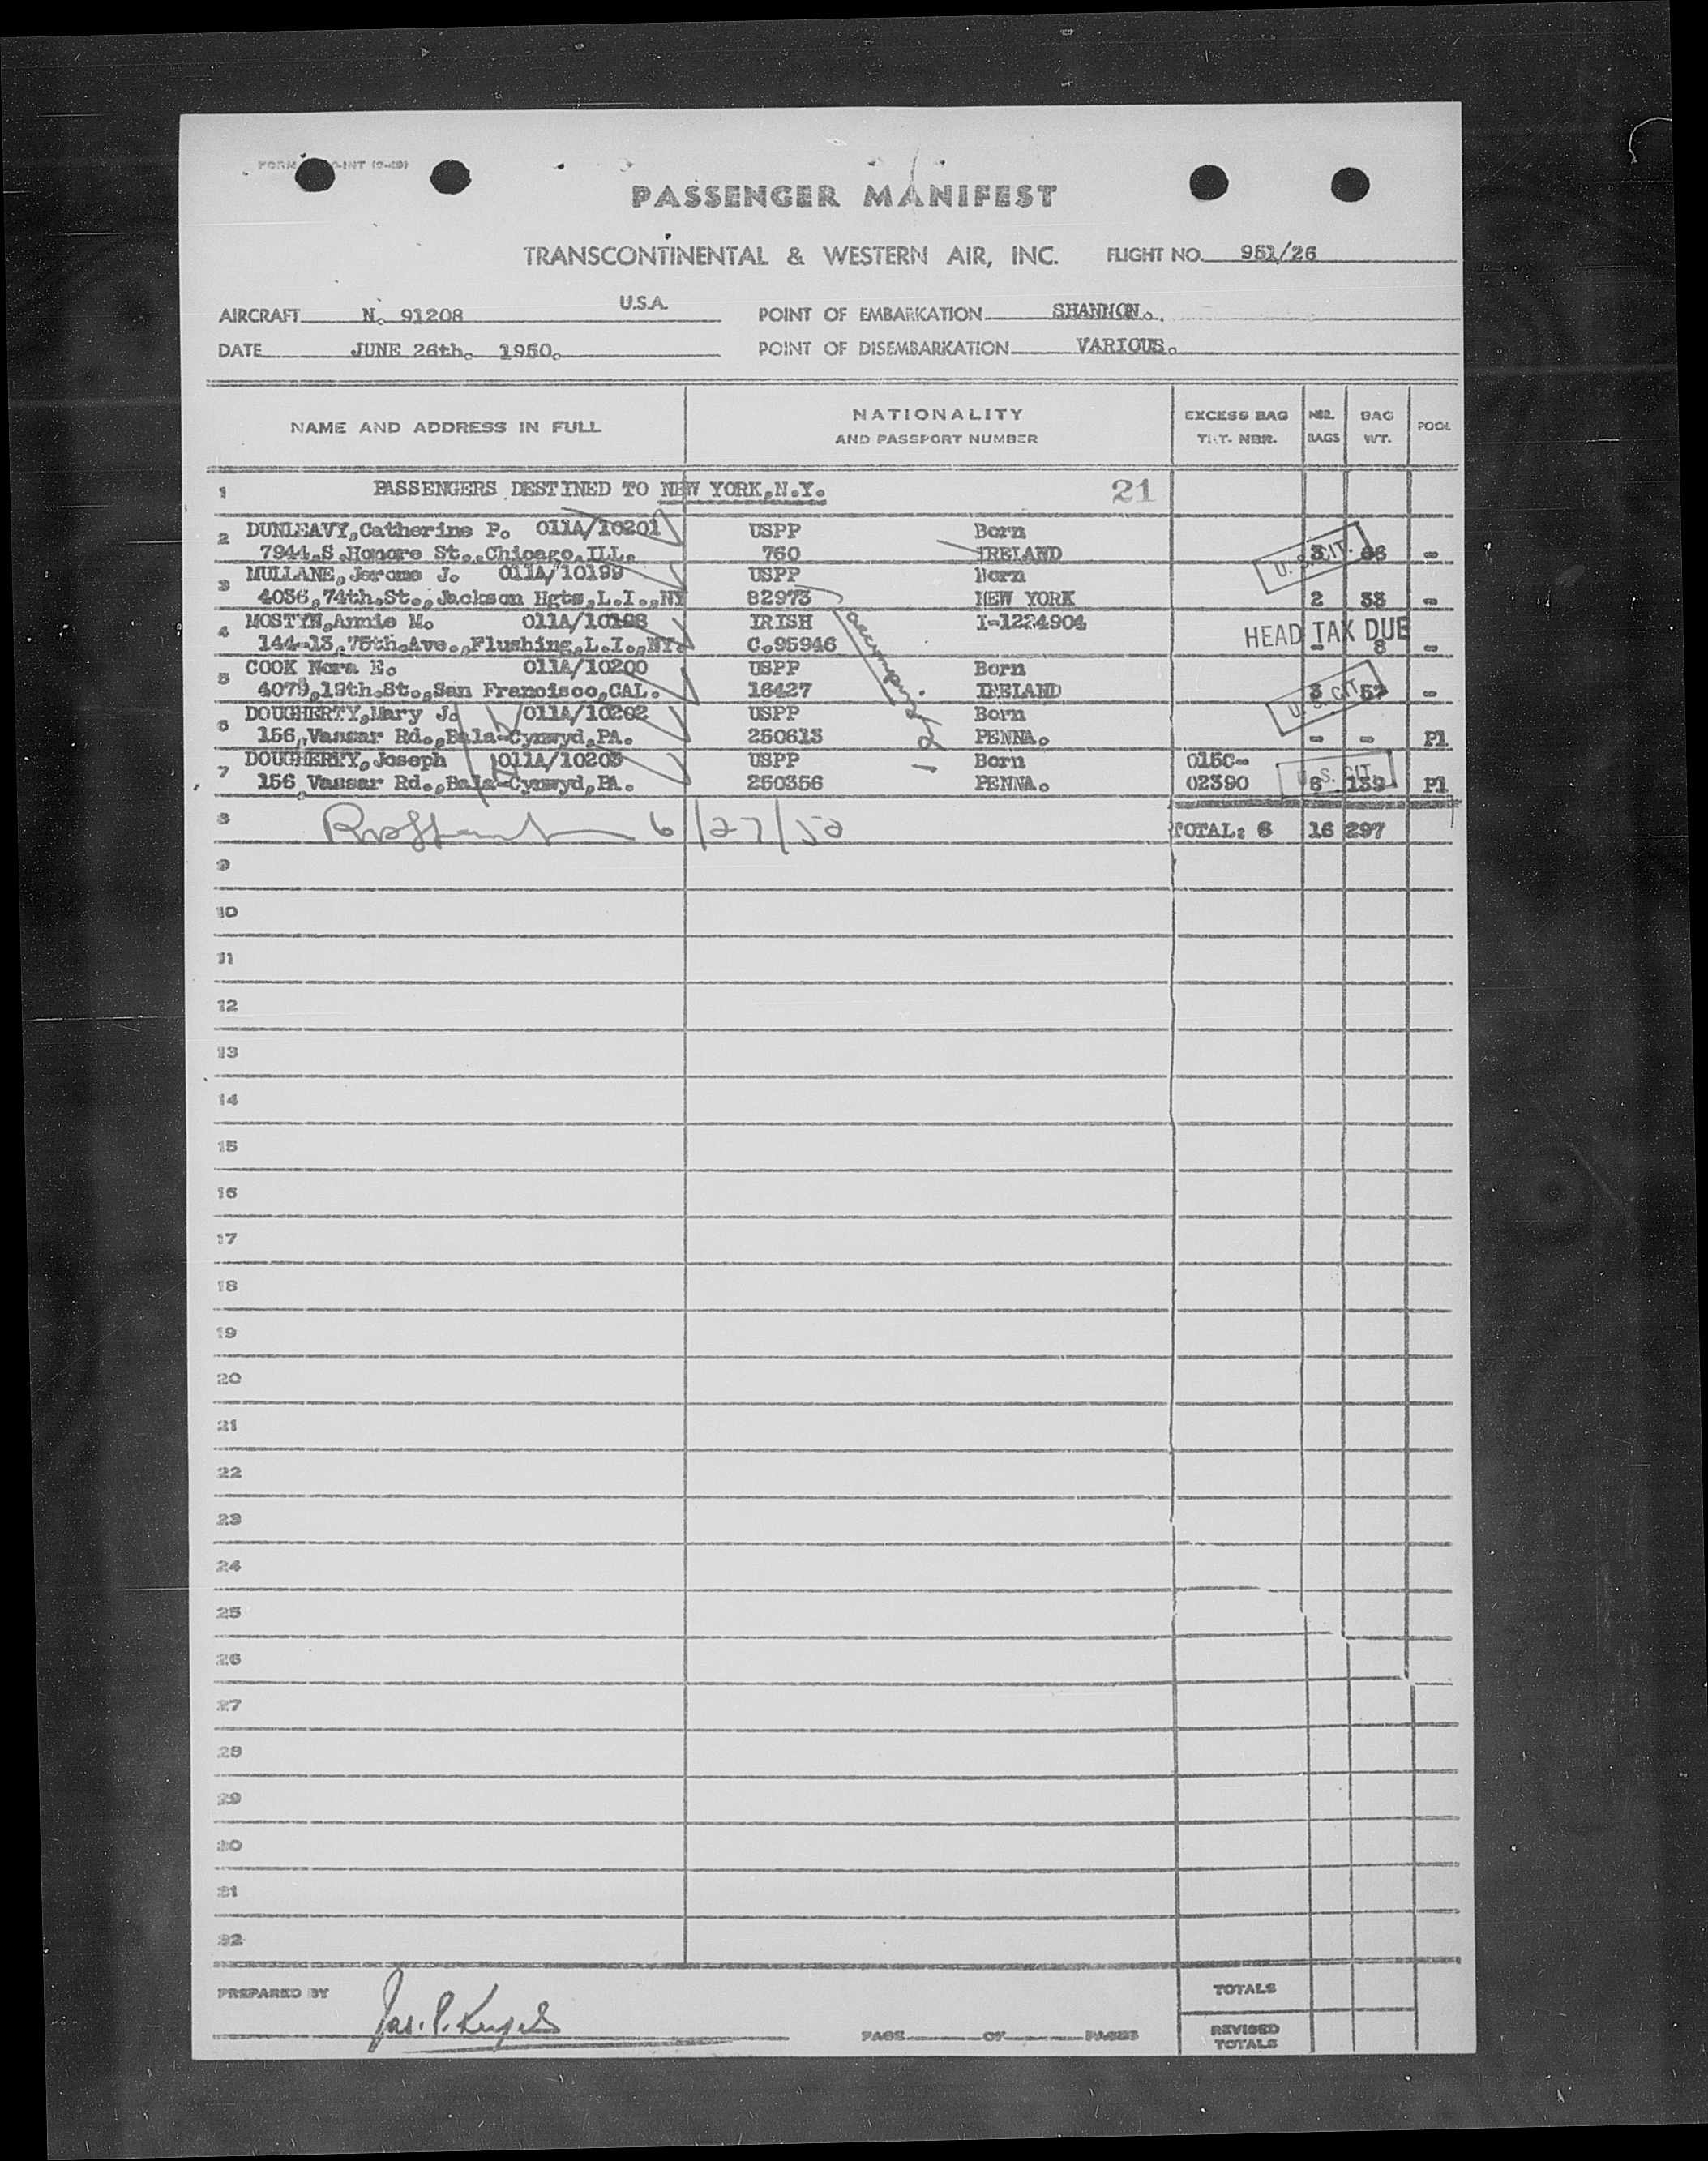 PASSENGER MANIFEST
TRANSCONTINENTAL & WESTERN AIR, INC. FLIGHT NO. 951/26
AIRCRAFT N. 91208 U.S.A. POINT OF EMBARKATION SHANNON.
DATE JUNE 26th. 1950. POINT OF DISEMBARKATION VARIOUS.
NAME AND ADDRESS IN FULL NATIONALITY AND PASSPORT NUMBER EXCESS BAG TKT. NBR. NBR. BAGS BAG WT. POOL
1 PASSENGERS DESTINED TO NEW YORK,N.Y. 21
2 DUNLEAVY,Catherine P. 011A/10201 USPP Born
7944.S.Honore St.,Chicago,ILL. 760 IRELAND 3 66 - U. S. CIT.
3 MULLANE,Jerome J. 011A/10199 USPP Born
4036,74th.St.,Jackson Hgts,L.I.,NY 82973 NEW YORK 2 33 -
4 MOSTYN,Annie M. 011A/10198 IRISH I-1224904
144-13,75th.Ave.,Flushing,L.I.,NY. C.95946 HEAD TAX DUE - 8 -
5 COOK Nora E. 011A/10200 USPP Born
4079,19th.St.,San Francisco,CAL. 16427 IRELAND 3 - U. S. CIT.
6 DOUGHERTY,Mary J. 011A/10202 USPP Born
156,Vassar Rd.,Bala-Cynwyd,PA. 250613 PENNA. - - P1
7 DOUGHERTY,Joseph 011A/10203 USPP Born 015C-
156 Vassar Rd.,Bala-Cynwyd,PA. 250356 PENNA. 02390 139 P1 U. S. CIT.
8 6/27/50 TOTAL: 6 16 297
9
10
11
12
13
14
15
16
17
18
19
20
21
22
23
24
25
26
27
28
29
30
31
32
PREPARED BY TOTALS
PAGE OF PAGES REVISED TOTALS